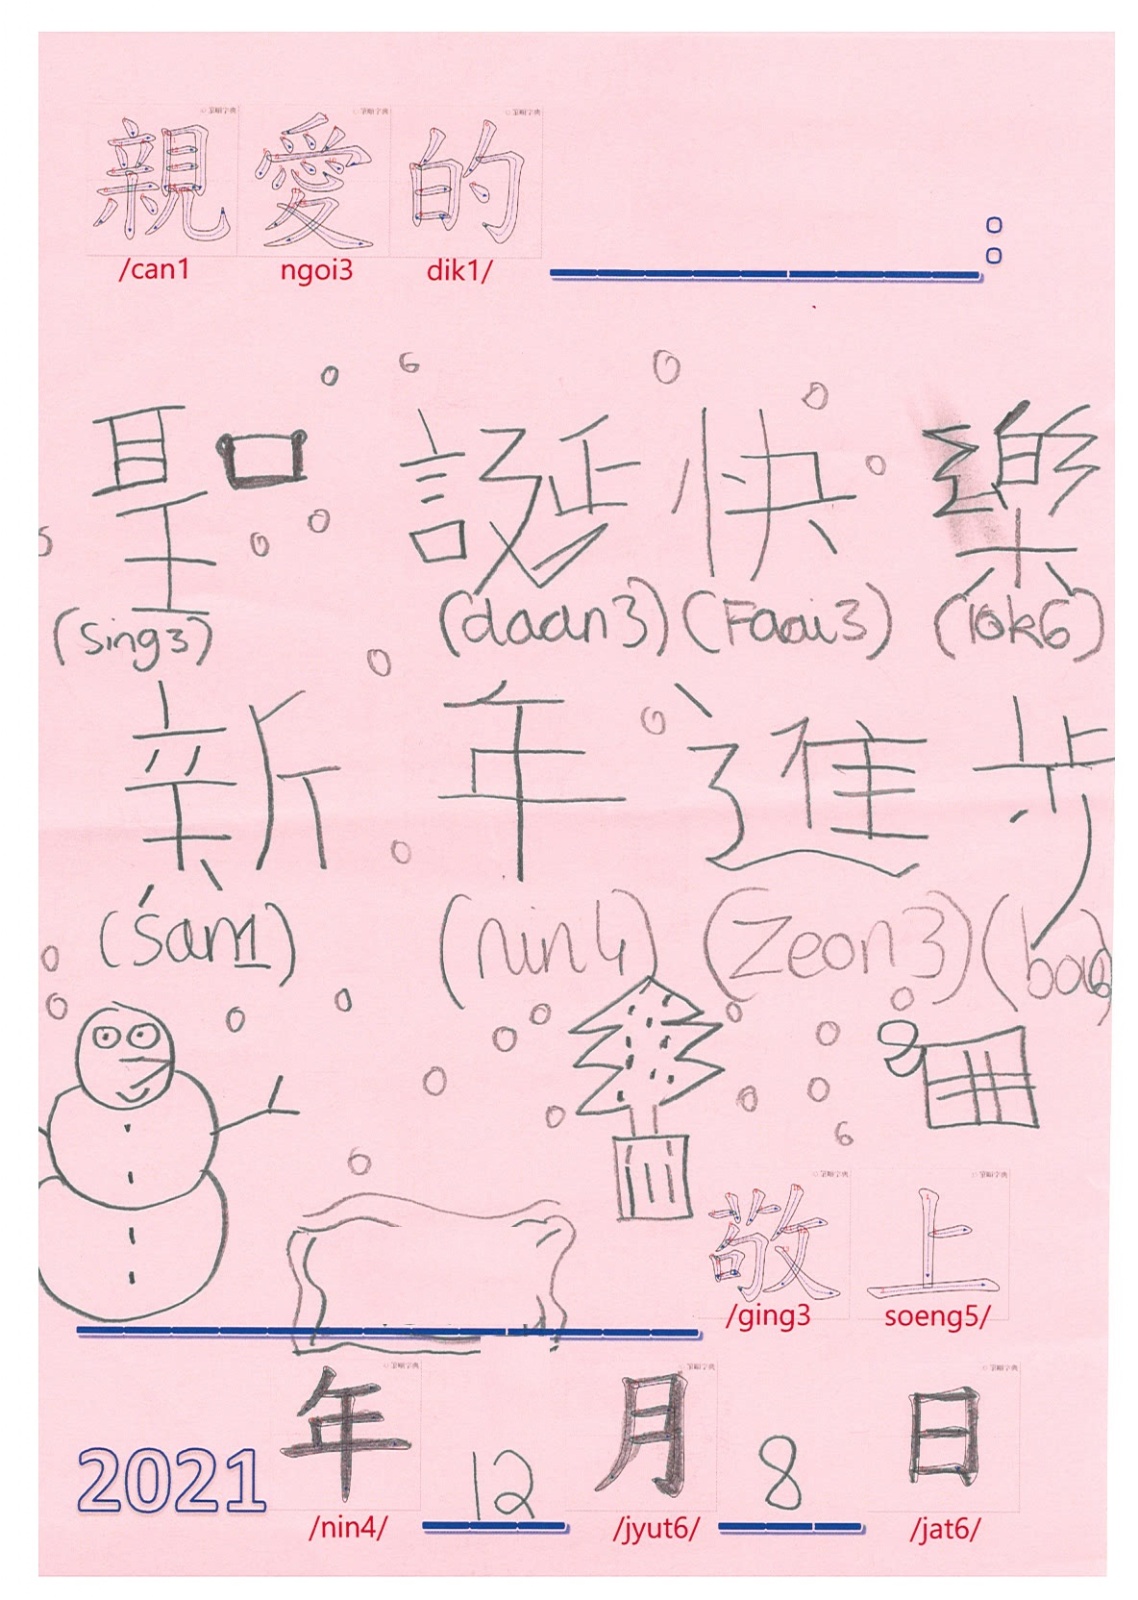 親愛的 :
/can1 ngoi3 dik1/
聖誕快樂
(sing3) (daan3) (Faai3) (lok6)
新年進步
(san1) (nin4) (Zeon3) (bou6)
敬上
/ging3 soeng5/
2021年12月8日
/nin4/ /jyut6/ /jat6/